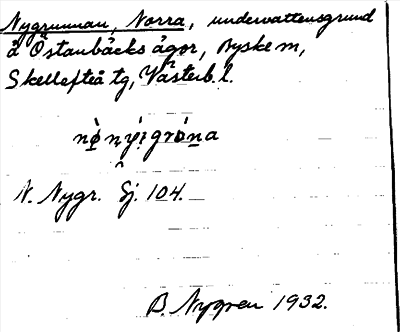 Nygrunnan, Norra, undervattensgrund
å Östanbäcks ägor, Byske sn,
Skellefteå tg, Västerb. l.
N. Nygr. Sj. 104.
B. Nygren 1932.